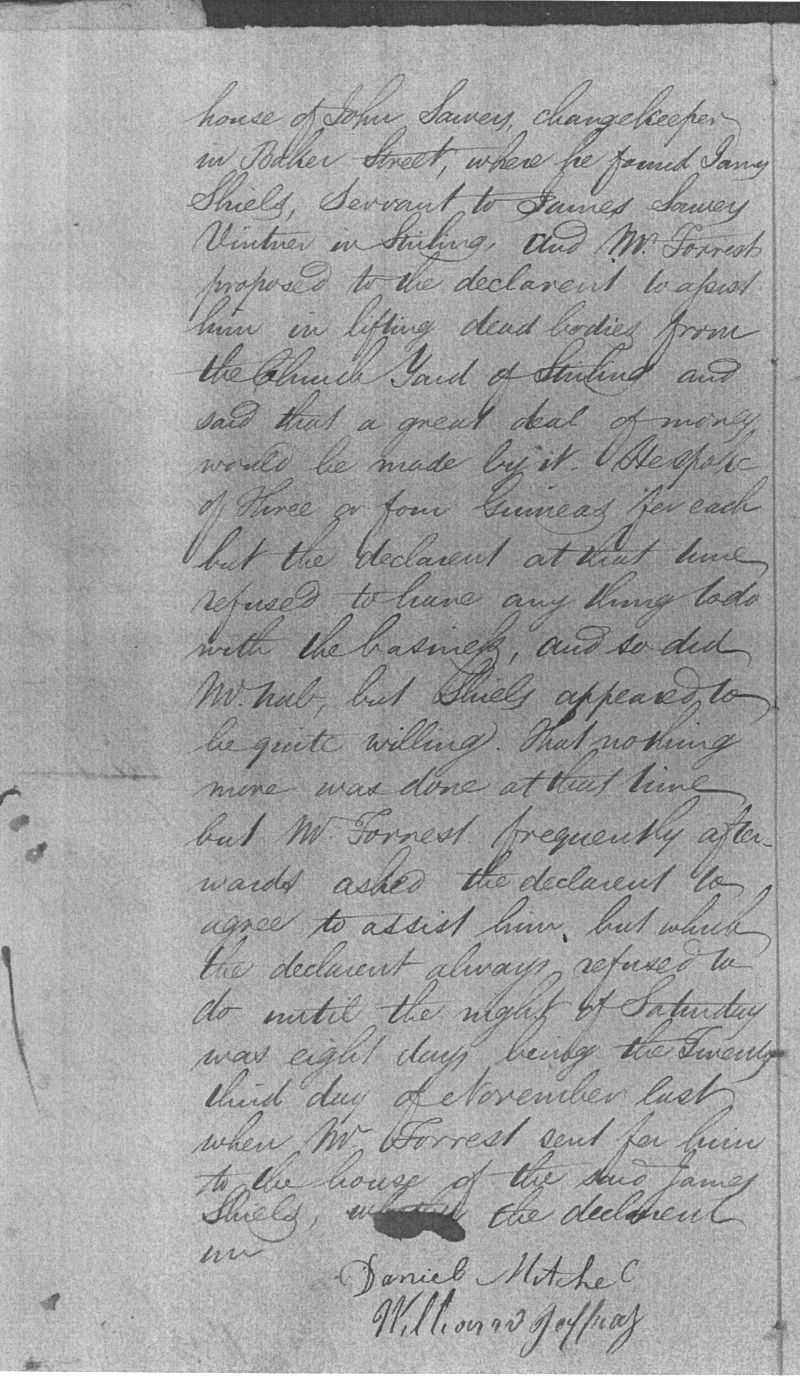 house of John Sawers, changekeeper
in Baker Street, where he found James
Shiels, Servant to James Sawers
Vintner in Stirling, and Mr. Forrest
proposed to the declarent to assist
him in lifting dead bodies from
the Church Yard of Stirling and
said that a great deal of money
would be made by it. He spoke
of three or four Guineas for each
but the declarent at that time
refused to have any thing to do
with the business, and so did
Mc.nab, but Shiels appeared to
be quite willing. That nothing
more was done at that time
but Mr. Forrest frequently after-
wards asked the declarent to
agree to assist him, but which
the declarent always refused to
do until the night of Saturday
was eight days being the Twenty
third day of November last
when Mr. Forrest sent for him
to the house of the said James
Shiels, the declarent
Daniel Mitchel
William Jaffray